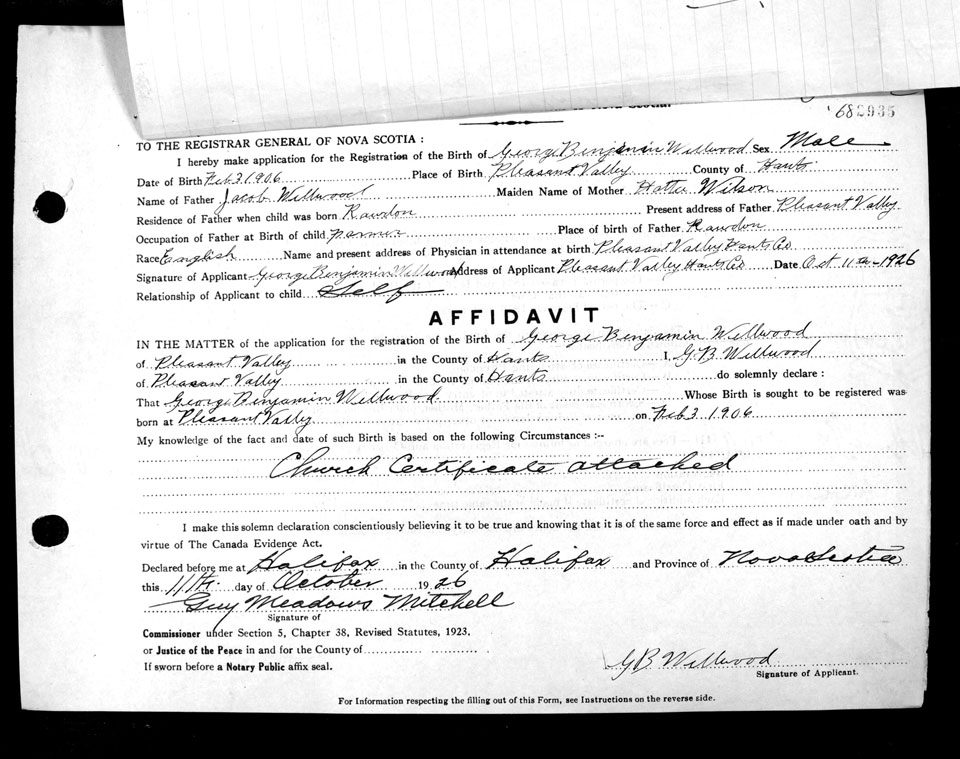 682935
TO THE REGISTRAR GENERAL OF NOVA SCOTIA :
I hereby make application for the Registration of the Birth of George Benjamin Wellwood Sex Male
Date of Birth Feb 3 1906 Place of Birth Pleasant Valley County of Hants
Name of Father Jacob Wellwood Maiden Name of Mother Hattie Wilson
Residence of Father when child was born Rawdon Present address of Father Pleasant Valley
Occupation of Father at Birth of child Farmer Place of birth of Father Rawdon
Race English Name and present address of Physician in attendance at birth Pleasant Valley Hants Co
Signature of Applicant George Benjamin Wellwood Address of Applicant Pleasant Valley Hants Co Date Oct 11th - 1926
Relationship of Applicant to child Self
AFFIDAVIT
IN THE MATTER of the application for the registration of the Birth of George Benjamin Wellwood
of Pleasant Valley in the County of Hants I, G B Wellwood
of Pleasant Valley in the County of Hants do solemnly declare :
That George Benjamin Wellwood Whose Birth is sought to be registered was
born at Pleasant Vally on Feb 3 1906
My knowledge of the fact and date of such Birth is based on the following Circumstances :--
Church Certificate attached
I make this solemn declaration conscientiously believing it to be true and knowing that it is of the same force and effect as if made under oath and by
virtue of The Canada Evidence Act.
Declared before me at Halifax in the County of Halifax and Province of Nova Scotia
this 11th day of October 1926
Guy Meadows Mitchell
Signature of
Commissioner under Section 5, Chapter 38, Revised Statutes, 1923.
or Justice of the Peace in and for the County of
If sworn before a Notary Public affix seal.
G B Wellwood
Signature of Applicant.
For Information respecting the filling out of this Form, see Instructions on the reverse side.